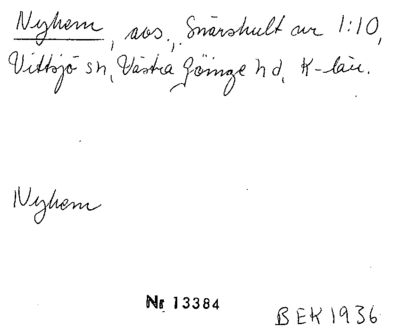 Nyhem, avs., Snärshult nr 1:10,
Vittsjö sn, Västra Göinge hd, K-län.
Nyhem
Nr 13384
BEK 1936